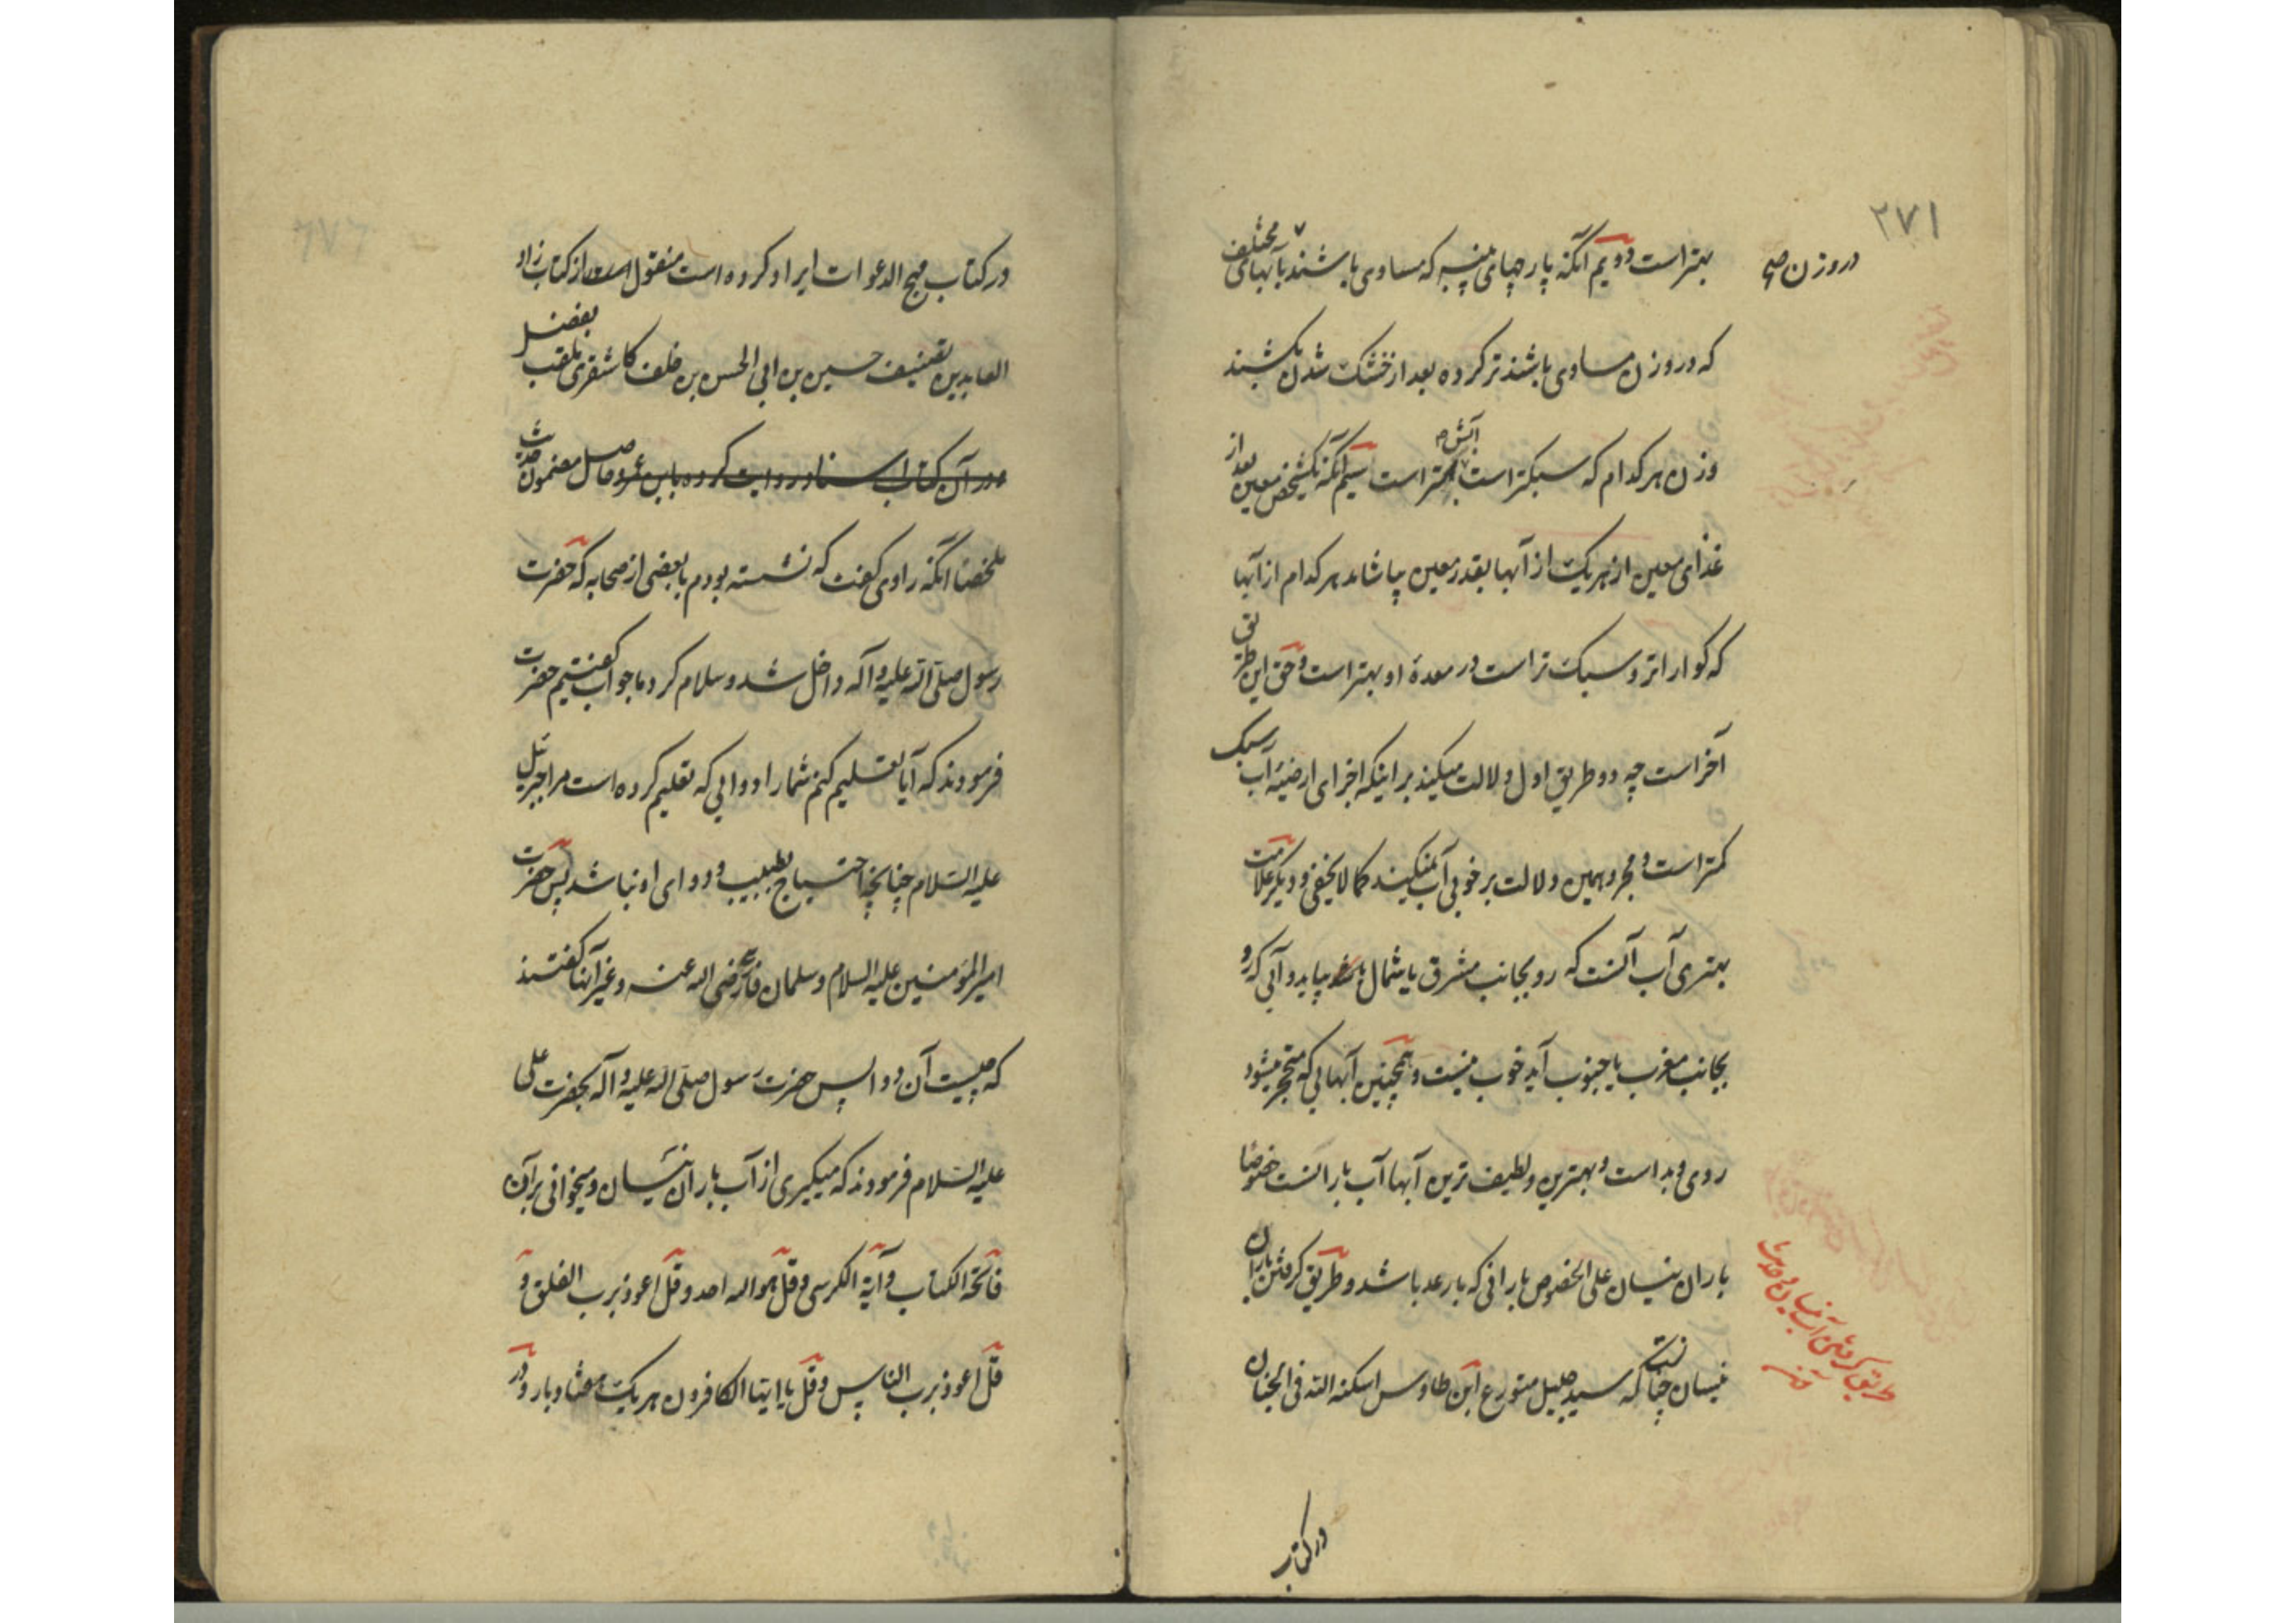 ۲۷۱
در وزن صح
بهتر است دویم آنکه پارچهای پنبه که مساوی باشند بآبهای مختلف
که در وزن مساوی باشند تر کرده بعد از خشک شدن بکشند
وزن هر کدام که سبکتر است آبش بهتر است سیم آنکه یکشخص معین بعد از
غذای معین از هر یک از آبها بقدر معین بیاشامد هر کدام از آبها
که کواراتر و سبک تر است در معدهٔ او بهتر است و حق این طریق
آخر است چه دو طریق اول دلالت میکند بر اینکه اجزای ارضیهٔ آب سبک
کمتر است و مجرد همین دلالت بر خوبی آب نمیکند کما لا یخفی و دیکر علامت
بهتری آب آنست که رو بجانب مشرق یا شمال بیاید و آبی که رو
بجانب مغرب یا جنوب آید خوب نیست و همچنین آبهایی که متحجر میشود
ردی و بد است و بهترین و لطیف ترین آبها آب بارانست خصوصا
باران نیسان علی الخصوص بارانی که با رعد باشد و طریق کرفتن باران
نیسان چنانست که سید جلیل متورع ابن طاوس اسکنه الله فی الجنان
طریق کرفتن آب نیسان و خواندن
در کتاب
در کتاب مهج الدعوات ایراد کرده است منقول است از کتاب زاد
العابدین تصنیف حسین بن ابی الحسن بن خلف کاشغری ملقب بفضل
و در آن کتاب اسناد روایت کرده باین عمر و حاصل مضمون حدیث
ملخصا آنکه راوی کفت که نشسته بودم با بعضی از صحابه که حضرت
رسول صلی الله علیه و آله داخل شد و سلام کرد ما جواب کفتیم حضرت
فرمودند که آیا تعلیم کنم شما را دوایی که تعلیم کرده است مرا جبرئیل
علیه السلام چنانچه احتیاج بطبیب و دوای او نباشد پس حضرت
امیر المؤمنین علیه السلام و سلمان فارسی رضی الله عنه و غیر آنها کفتند
که چیست آن دوا پس حضرت رسول صلی الله علیه و آله بحضرت علی
علیه السلام فرمودند که میکیری از آب باران نیسان و میخوانی بر آن
فاتحة الکتاب و آیة الکرسی و قل هو الله احد و قل اعوذ برب الفلق و
قل اعوذ برب الناس و قل یا ایها الکافرون هر یک هفتاد بار و در